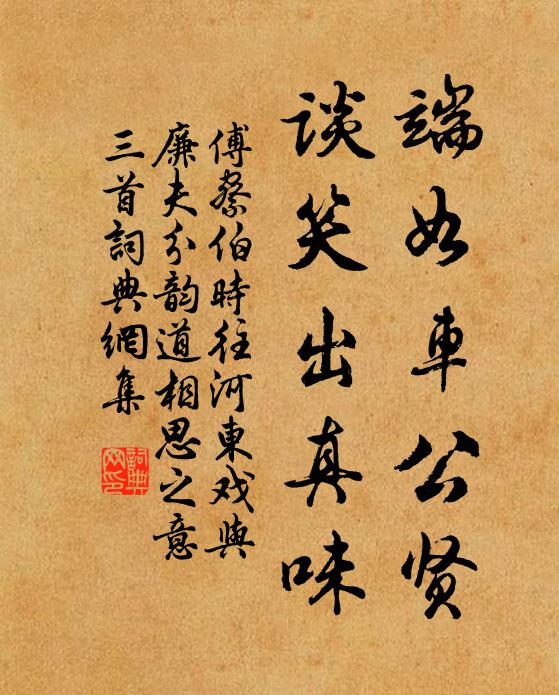 端如車公贤
谈笑出真味
傅察伯時往河東戏與
廉夫分韵道相思之意
三首詞典網集
詞典網印